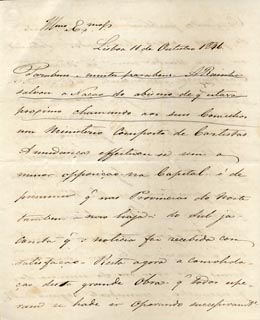 Lisboa 11 de Outubro 1846
Parabens e muitos parabens A Rainha
salvou a Nação do abismo de q' estava
proximo chamando aos seus Conselhos
um Ministerio Composto de Cartistas
A mudança effectuou se sem a
menor opposição na Capital é de
presumir q' nas Provincias do Norte
tambem a não haja: do Sul já
consta q' a noticia foi recebida com
satisfação. Resta agora a consolida
ção desta grande Obra q' todos espe
rão se hade ir Operando